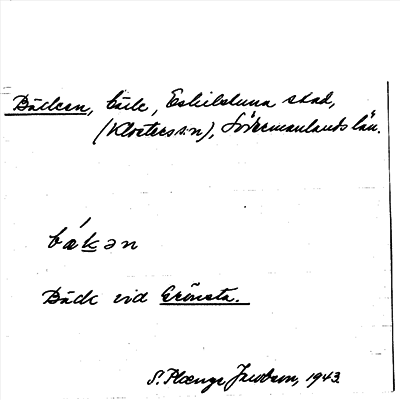 Bäcken, bäck, Eskilstuna stad,
(Klosters sn), Södermanlands län.
bákən
Bäck vid Grönsta.
S. Plænge Jacobson, 1943.